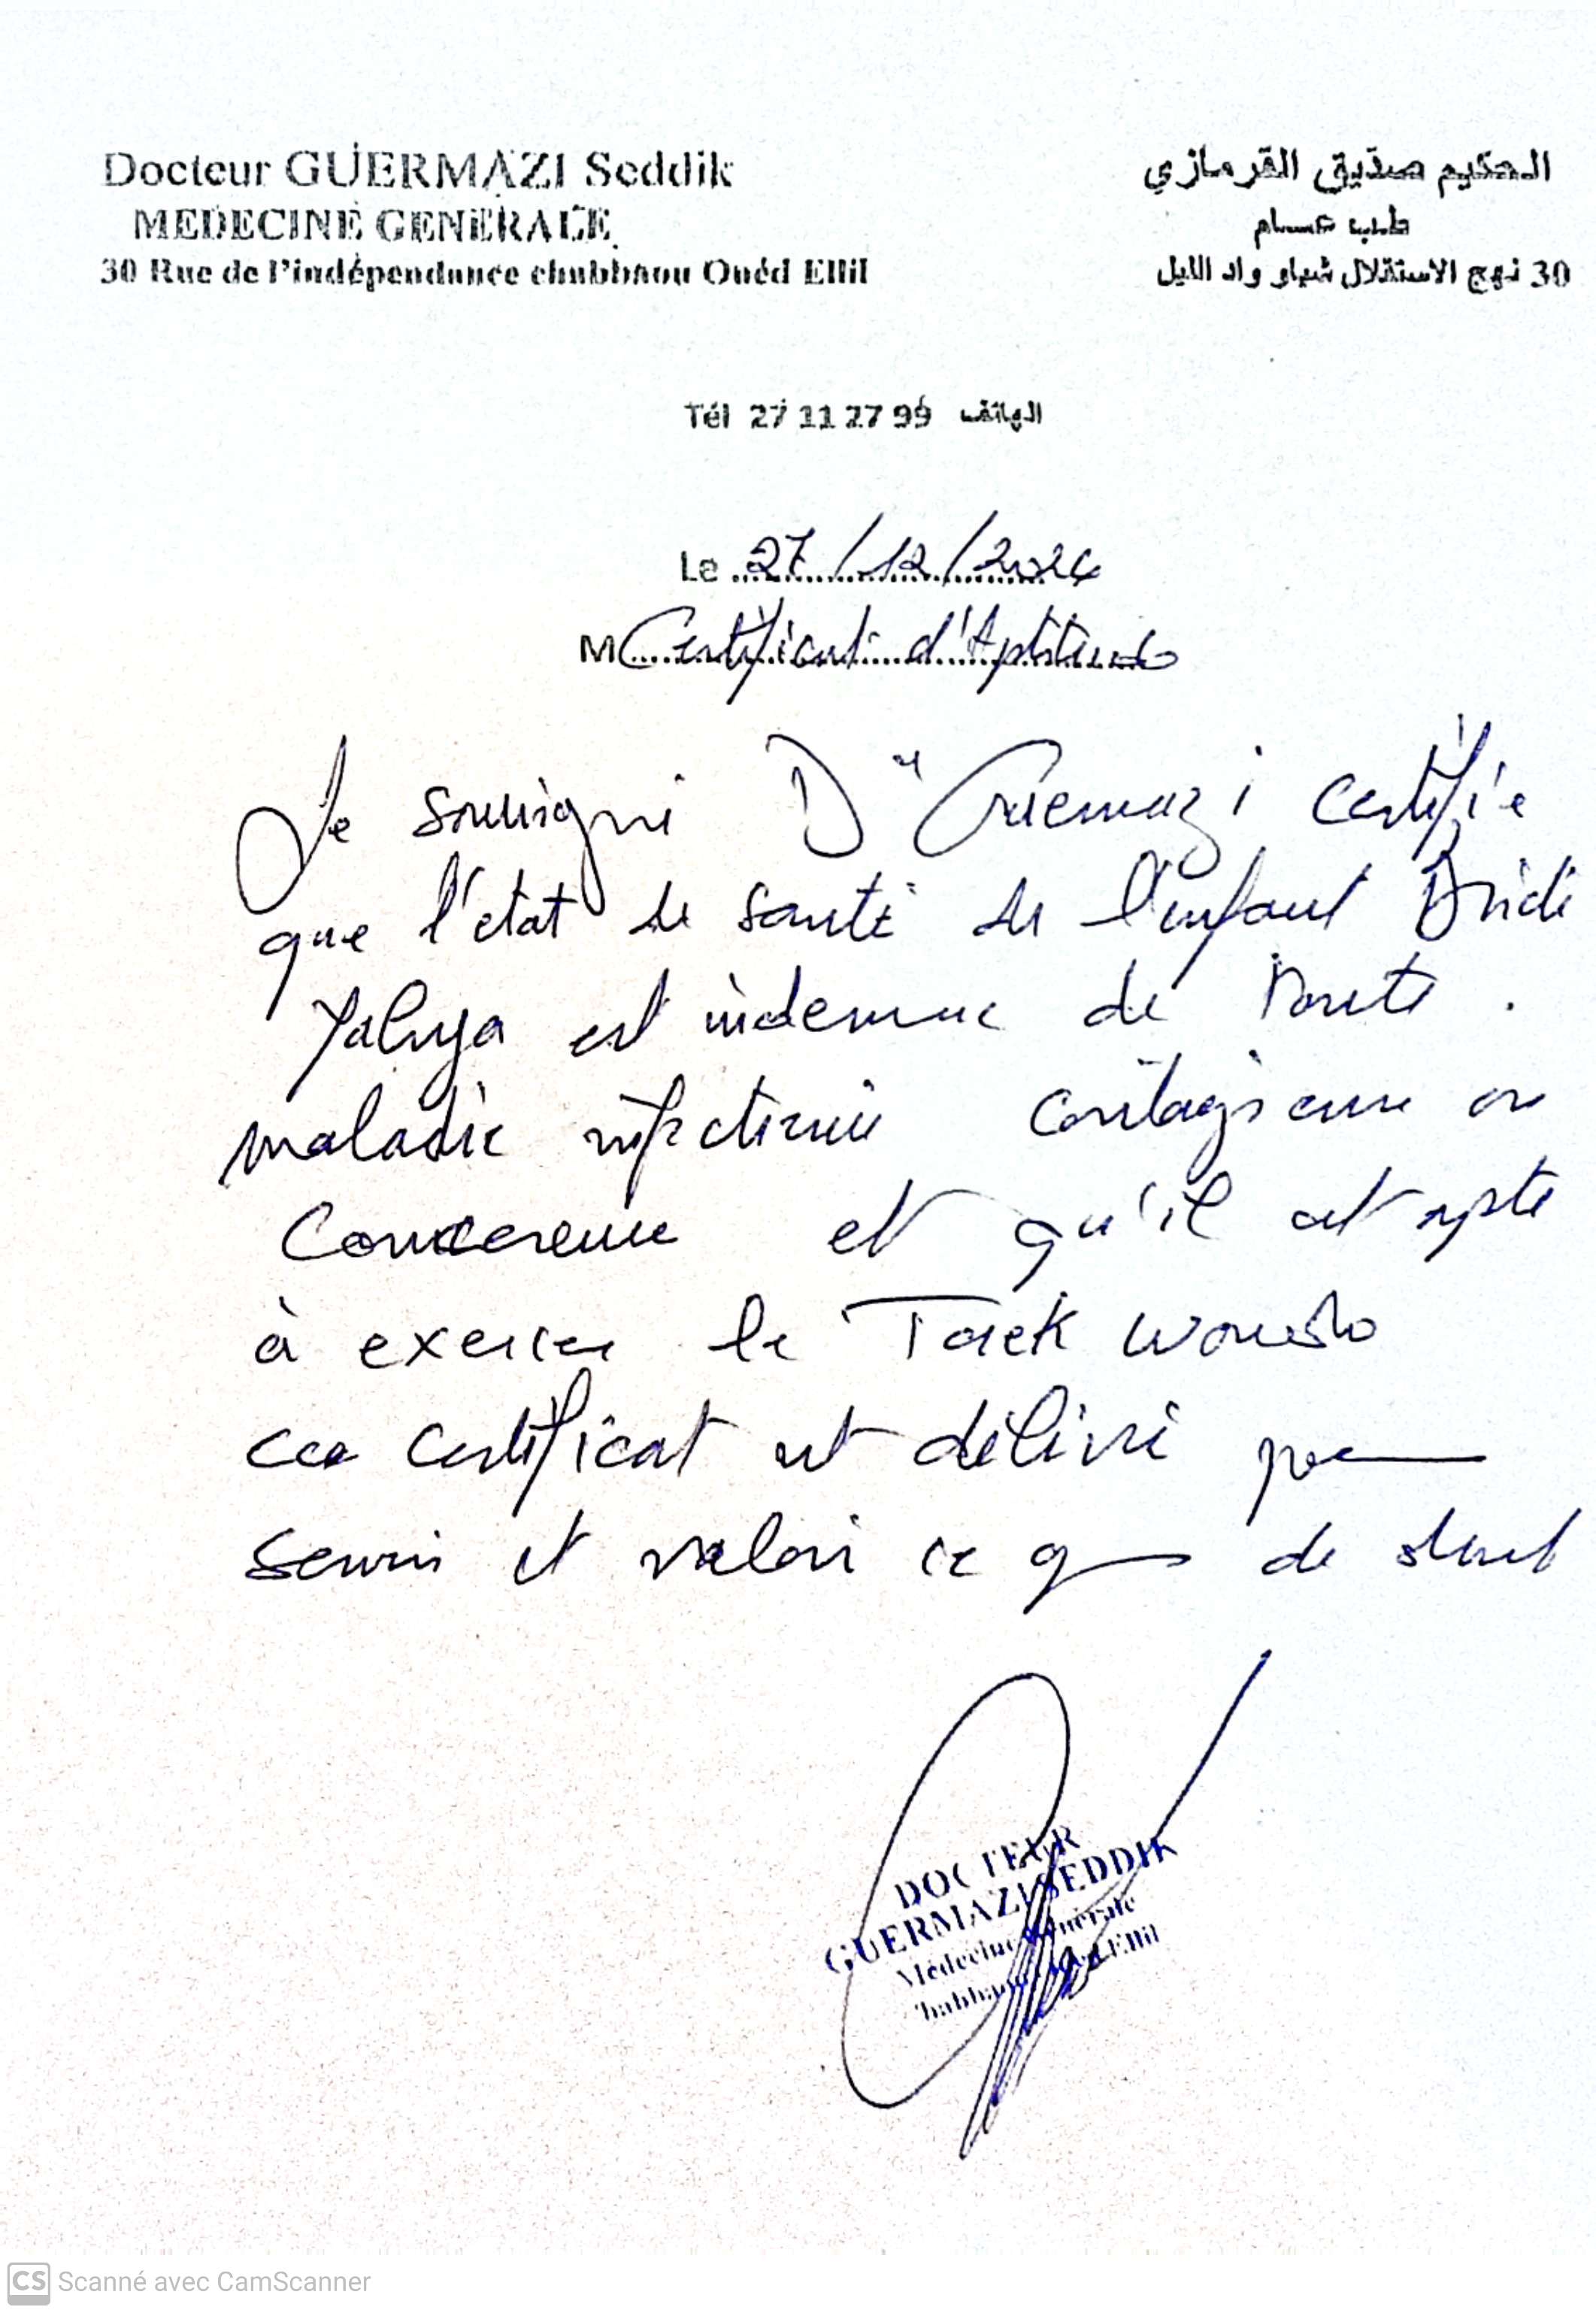 Docteur GUERMAZI Seddik
MEDECINE GENERALE
30 Rue de l'indépendance chabbaou Ouéd Ellil
الحكيم صديق القرمازي
طب عام
30 نهج الاستقلال شباو واد الليل
Tél 27 11 27 99 الهاتف
Le 27/12/2024
M Certificat d'Aptitude
Je soussigné Dr Guermazi certifie
que l'état de santé de l'enfant Bridi
Yahya est indemne de toute
maladie infectieuse contagieuse ou
et qu'il est apte
à exercer le Taek wondo
ce certificat est délivré pour
servir et valoir ce que de droit
DOCTEUR
GUERMAZI SEDDIK
Médecine Générale
Chabbaou Oued Ellil
CS Scanné avec CamScanner